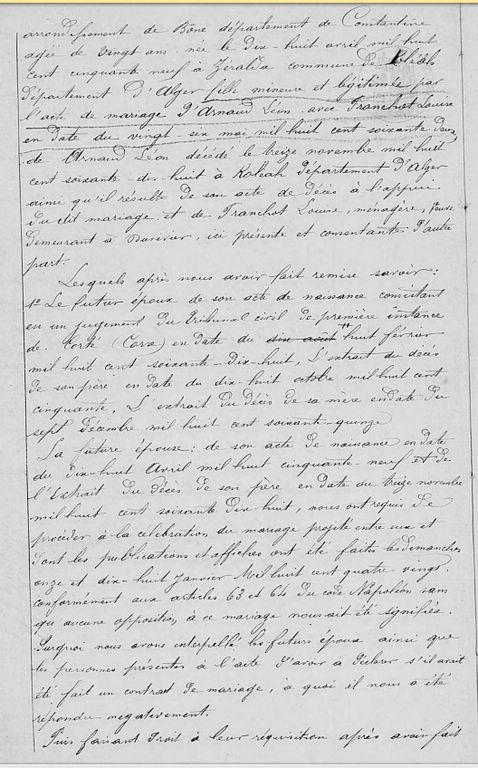 arrondissement de Bône département de Constantine
agée de vingt ans née le Dix-huit avril mil huit
cent cinquante neuf à Zéralda commune de Koléah
Département d'Alger fille mineure et légitimée par
l'acte de mariage d'Arnaud Léon avec Franchot Louise
en date du vingt-six mai mil huit cent soixante deux
de Arnaud Léon décédé le treize novembre mil huit
cent soixante-dix-huit à Koléah Département d'Alger
ainsi qu'il résulte de son acte de décès à l'appui
du dit mariage, et de Franchot Louise, ménagère, Veuve
Demeurant à Duvivier, ici présente et consentante D'autre
part.
Lesquels après nous avoir fait remise savoir:
1° Le futur époux de son acte de naissance consistant
en un jugement du Tribunal civil de première instance
de Corté (Corse) en date du six août huit février
mil huit cent soixante-Dix-huit, L'extrait du décès
de son père en date du dix-huit octobre mil huit cent
cinquante, L'extrait du Décès de sa mère en date du
sept décembre mil huit cent soixante-quinze
La future épouse: de son acte de naissance en date
du Dix-huit Avril mil huit cinquante-neuf et de
l'Extrait du Décès de son père en date du treize novembre
mil huit cent soixante Dix-huit, nous ont requis de
procéder à la célébration du mariage projeté entre eux et
dont les publications et affiches ont été faites les Dimanches
onze et dix-huit Janvier Mil huit cent quatre vingt.
conformément aux articles 63 et 64 du code Napoléon sans
qu'aucune opposition à ce mariage nous ait été signifiée.
Surquoi nous avons interpellé les futurs époux ainsi que
les personnes présentes à l'acte d'avoir à Déclarer s'il avait
été fait un contrat de mariage, à quoi il nous a été
répondu negativement.
Puis faisant Droit à leur réquisition après avoir fait